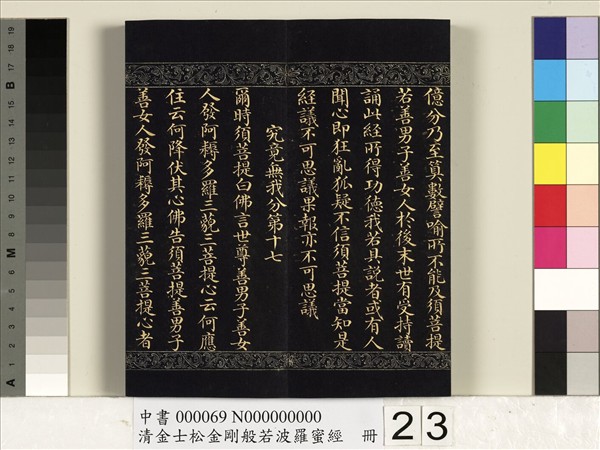 億分乃至算數譬喻所不能及須菩提
若善男子善女人於後末世有受持讀
誦此經所得功德我若具說者或有人
聞心即狂亂狐疑不信須菩提當知是
經議不可思議果報亦不可思議
究竟無我分第十七
爾時須菩提白佛言世尊善男子善女
人發阿耨多羅三藐三菩提心云何應
住云何降伏其心佛告須菩提善男子
善女人發阿耨多羅三藐三菩提心者
中書 000069 N000000000
清金士松金剛般若波羅蜜經 冊
23
A 1 2 3 4 5 6 M 8 9 10 11 12 13 14 15 B 17 18 19